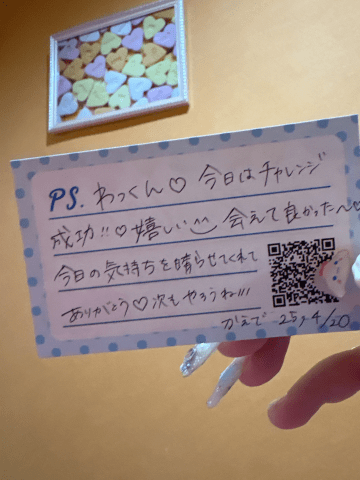 PS. わっくん♡ 今日はチャレンジ
成功!!♡嬉しい 会えて良かったん
今日の気持ちを晴らせてくれて
ありがとう♡次もやろうね!!!
かえで 25,4/20